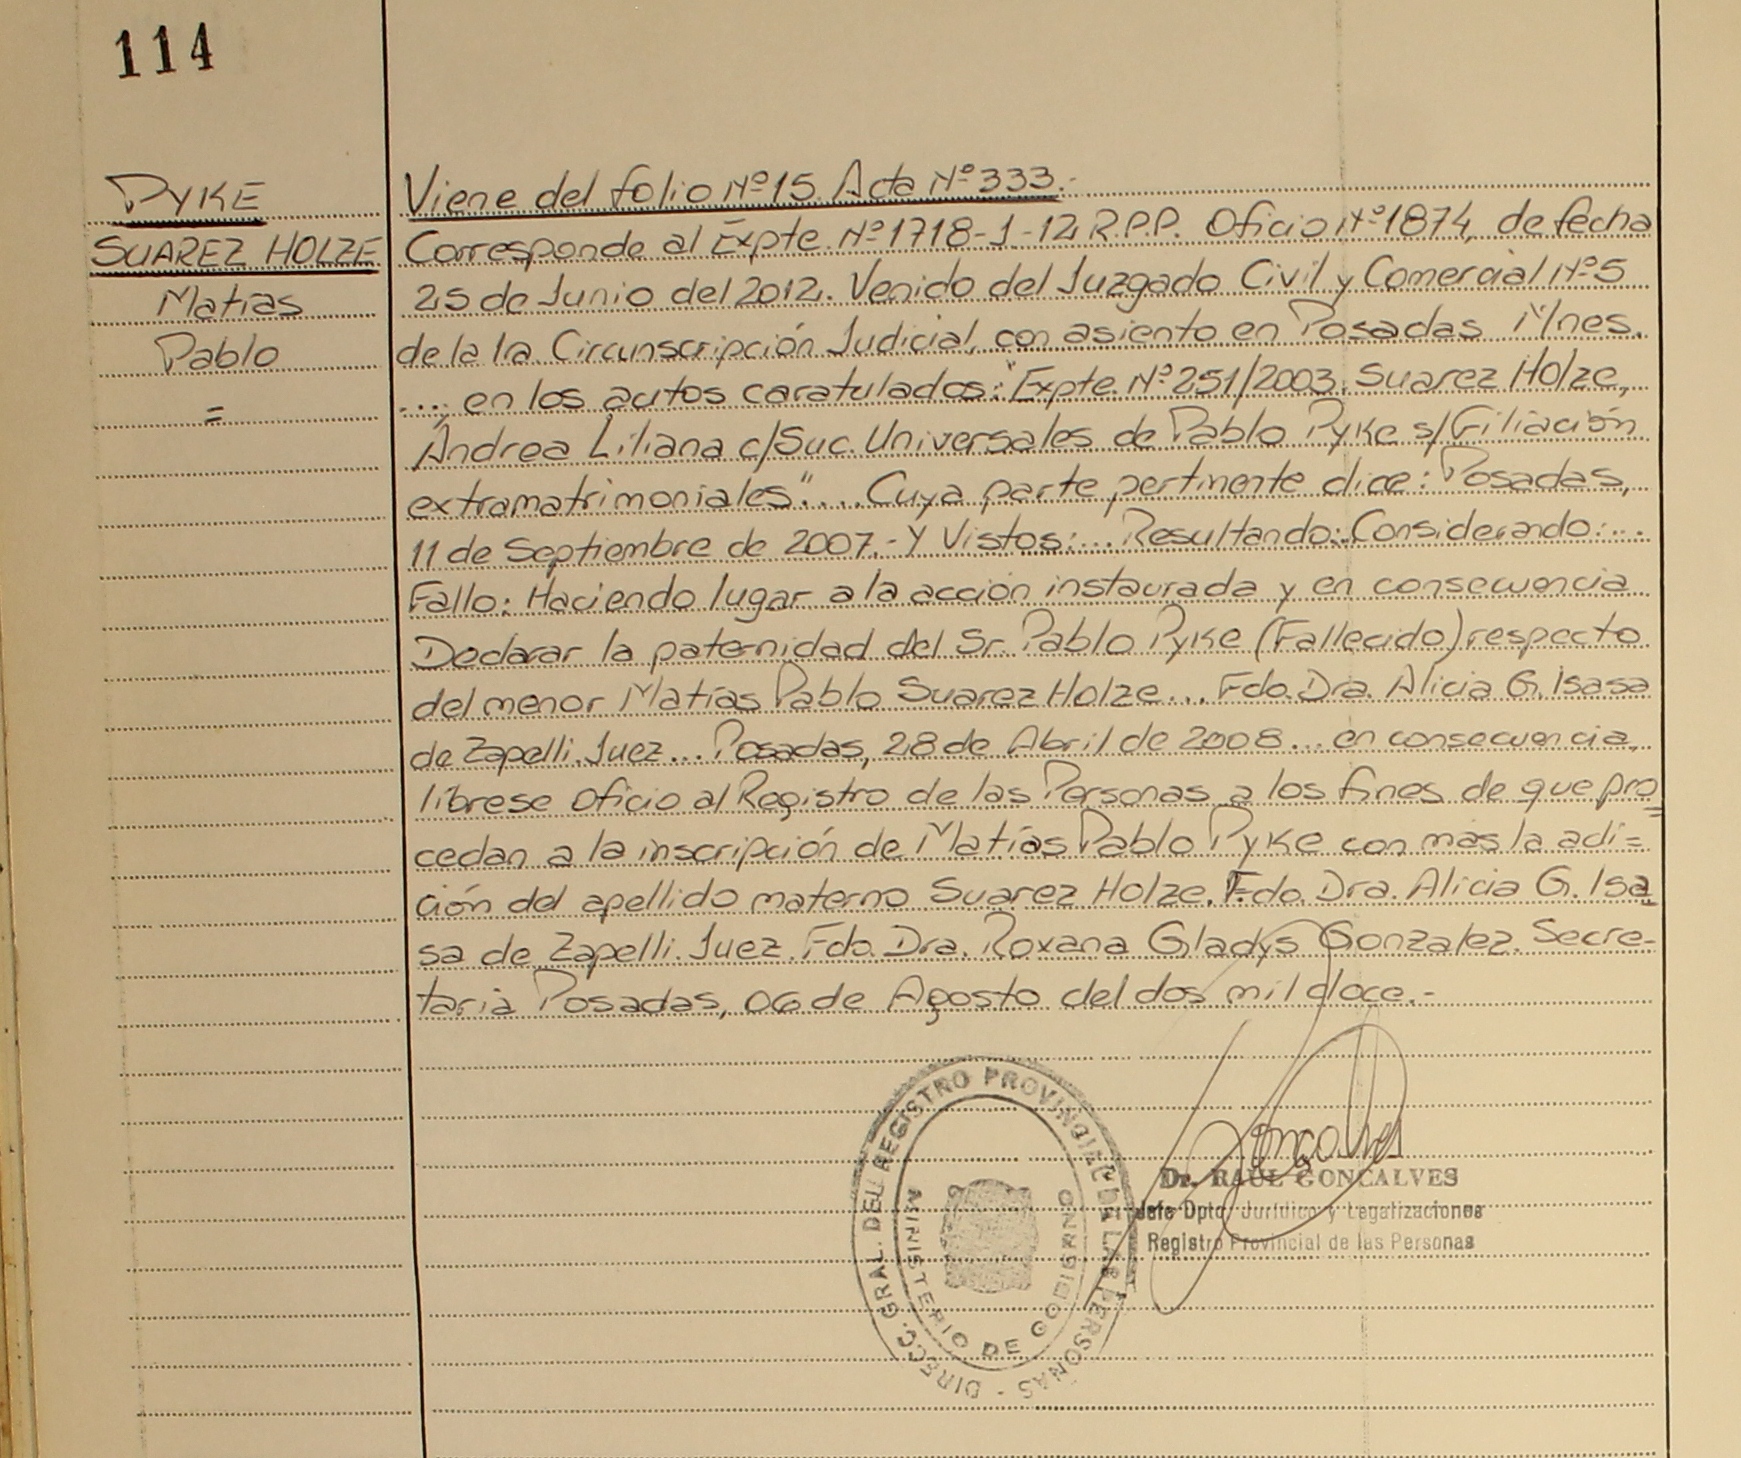 114
PYKE
SUAREZ HOLZE
Matías
Pablo
=
Viene del folio Nº15. Acta Nº333.-
Corresponde al Expte. Nº1718-1-12, R.P.P. Oficio Nº1874, de fecha
25 de Junio del 2012. Venido del Juzgado Civil y Comercial Nº5
de la 1a Circunscripción Judicial, con asiento en Posadas Mnes.
... en los autos caratulados: "Expte. Nº251/2003. Suarez Holze,
Andrea Liliana c/Suc. Universales de Pablo Pyke s/Filiación
extramatrimoniales"... Cuya parte pertinente dice: Posadas,
11 de Septiembre de 2007.- Y Vistos:... Resultando: Considerando:...
Fallo: Haciendo lugar a la acción instaurada y en consecuencia
Declarar la paternidad del Sr. Pablo Pyke (Fallecido) respecto
del menor Matías Pablo Suarez Holze... Fdo. Dra. Alicia G. Isasa
de Zapelli. Juez... Posadas, 28 de Abril de 2008... en consecuencia,
líbrese Oficio al Registro de las Personas a los fines de que pro=
cedan a la inscripción de Matías Pablo Pyke con más la adi=
ción del apellido materno Suarez Holze. Fdo. Dra. Alicia G. Isa=
sa de Zapelli. Juez. Fdo. Dra. Roxana Gladys Gonzalez. Secre-
taria Posadas, 06 de Agosto del dos mil doce.-
DIRECC. GRAL. DEL REGISTRO PROVINCIAL DE LAS PERSONAS -
MINISTERIO DE GOBIERNO
Dr. RAUL GONCALVES
Jefe Dpto. Jurídico y Legalizaciones
Registro Provincial de las Personas